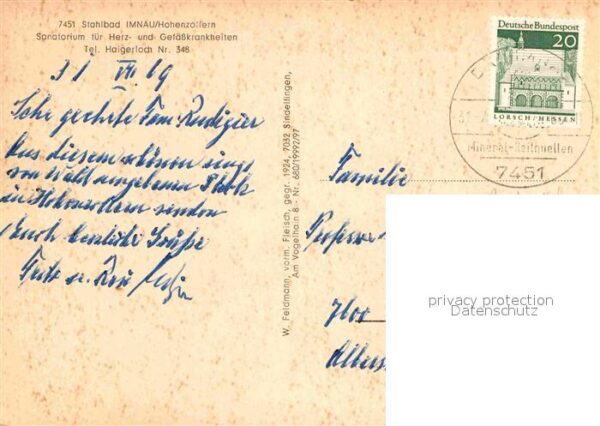 7451 Stahlbad IMNAU/Hohenzollern
Sanatorium für Herz- und Gefäßkrankheiten
Tel. Haigerloch Nr. 348
31 VII 69
Sehr geehrte Fam. Rudigier
Aus diesem schönen rings
von Wald umgebenen Platz
in Hohenzollern senden
Euch herzliche Grüße
Fritz u.
W. Feldmann, vorm. Fleisch, gegr. 1924, 7032 Sindelfingen,
Am Vogelhain 8 - Nr. 680/19992/97
Deutsche Bundespost
20
LORSCH/HESSEN
Mineral-Heilquellen
7451
Familie
privacy protection
Datenschutz